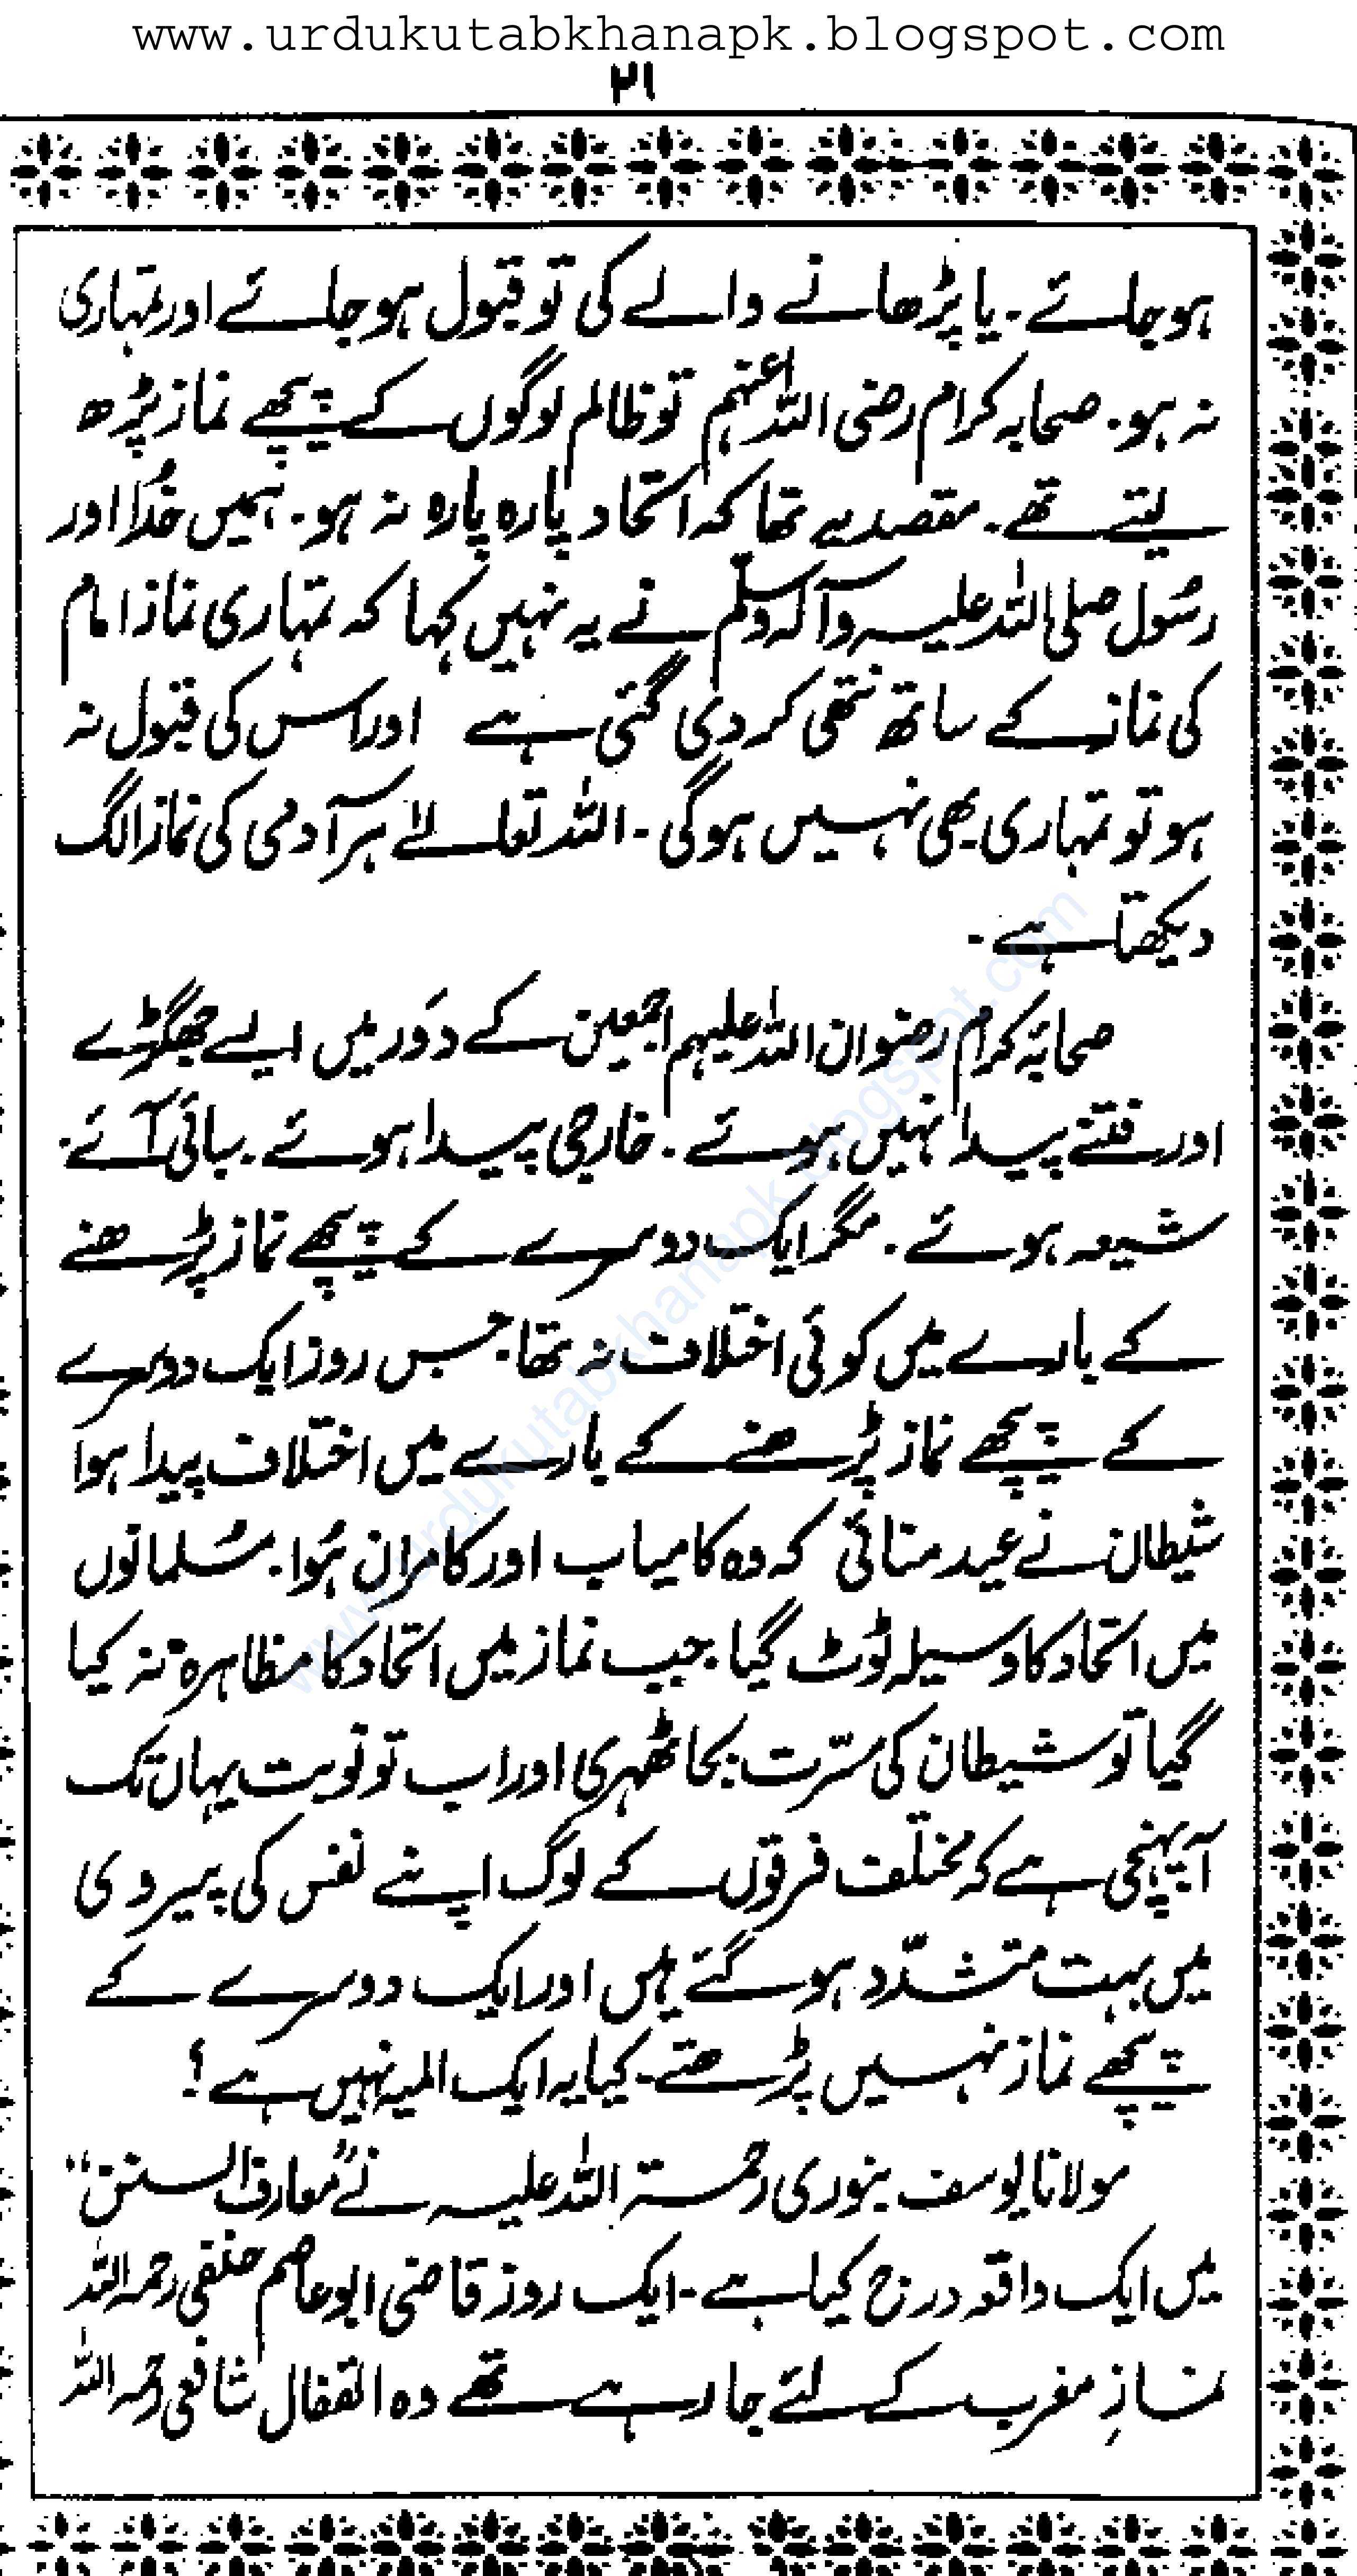 www.urdukutabkhanapk.blogspot.com
۲۱
ہوجائے۔ یا پڑھانے والے کی تو قبول ہوجائے اور تمہاری
نہ ہو۔ صحابہ کرام رضی اللہ عنہم تو ظالم لوگوں کے پیچھے نماز پڑھ
لیتے تھے۔ مقصد یہ تھا کہ اتحاد پارہ پارہ نہ ہو۔ ہمیں خُدا اور
رسُول صلی اللہ علیہ وآلہ وسلّم نے یہ نہیں کہا کہ تمہاری نماز امام
کی نماز کے ساتھ نتھی کر دی گئی ہے اور اس کی قبول نہ
ہو تو تمہاری بھی نہیں ہوگی۔ اللہ تعالےٰ ہر آدمی کی نماز الگ
دیکھتا ہے۔
صحابۂ کرام رضوان اللہ علیہم اجمعین کے دَور میں ایسے جھگڑے
اور فتنے پیدا نہیں ہوئے۔ خارجی پیدا ہوئے۔ سبائی آئے۔
شیعہ ہوئے۔ مگر ایک دوسرے کے پیچھے نماز پڑھنے
کے بارے میں کوئی اختلاف نہ تھا۔ جس روز ایک دوسرے
کے پیچھے نماز پڑھنے کے بارے میں اختلاف پیدا ہوا
شیطان نے عید منائی کہ وہ کامیاب اور کامران ہُوا۔ مسُلمانوں
میں اتحاد کا وسیلہ ٹوٹ گیا۔ جب نماز میں اتحاد کا مظاہرہ نہ کیا
گیا تو شیطان کی مسّرت بجا ٹھہری اور اب تو نوبت یہاں تک
آپہنچی ہے کہ مختلف فرقوں کے لوگ اپنے نفس کی پیروی
میں بہت متشدّد ہوگئے ہیں اور ایک دوسرے کے
پیچھے نماز نہیں پڑھتے۔ کیا یہ ایک المیہ نہیں ہے؟
مولانا یوسف بنوری رحمۃ اللہ علیہ نے "معارف السنن"
میں ایک واقعہ درج کیا ہے۔ ایک روز قاضی ابو عاصم حنفی رحمہ اللہ
نمازِ مغرب کے لئے جا رہے تھے وہ القفال شافعی رحمہ اللہ
www.urdukutabkhanapk.blogspot.com